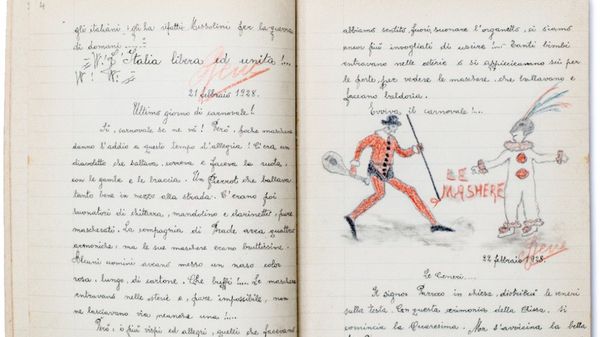 gli italiani, gli ha rifatti Mussolini per la guerra
di domani......
W! l'Italia libera ed unita!...
W! W!...
Bene
21 febbraio 1928.
Ultimo giorno di carnevale!
Il carnevale se ne va! Però, poche maschere
danno l'addio a questo tempo d'allegria! C'era un
diavoletto che saltava, correva e faceva la ruota,
con le gambe e le braccia. Un Pierrot che ballava
tanto bene in mezzo alla strada. C'erano poi
suonatori di chitarra, mandolino e clarinetto, pure
mascherati. La compagnia di Prade avea quattro
armoniche, ma le sue maschere erano bruttissime.
Alcuni uomini aveano messo un naso color
rosa, lungo, di cartone. Che buffi!... Le maschere
entravano nelle osterie e, pare impossibile, non
ne lasciavano via neanche una!...
Però, i più vispi ed allegri, quelli che facevano
abbiamo sentito, fuori, suonare l'organetto, ci siamo
ancor più invogliati di uscire!... Tanti bimbi
entravano nelle osterie o si appiccicavano su per
le porte per vedere le maschere, che ballavano e
facevano baldoria.
Evviva il carnevale!...
LE
MASHERE
Bene
22 febbraio 1928.
Le Ceneri....
Il signor Parroco in chiesa, distribuì le ceneri
sulla testa. Con questa cerimonia della Chiesa, si
comincia la Quaresima. Ma s'avvicina la bella